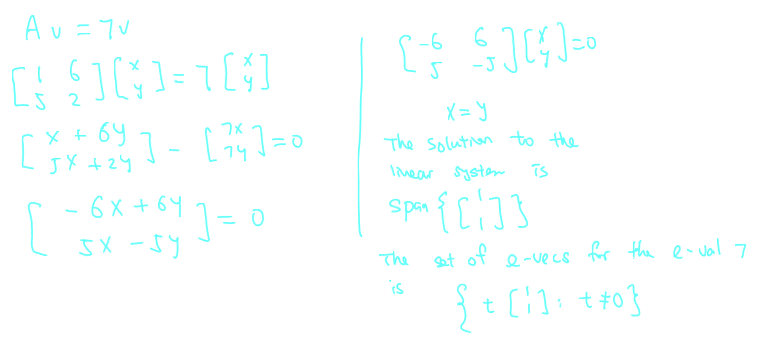 A v = 7v
[1 6; 5 2] [x; y] = 7 [x; y]
[x + 6y; 5x + 2y] - [7x; 7y] = 0
[-6x + 6y; 5x - 5y] = 0
[-6 6; 5 -5] [x; y] = 0
x = y
The solution to the
linear system is
span { [1; 1] }
The set of e-vecs for the e-val 7
is
{ t [1; 1] : t ≠ 0 }